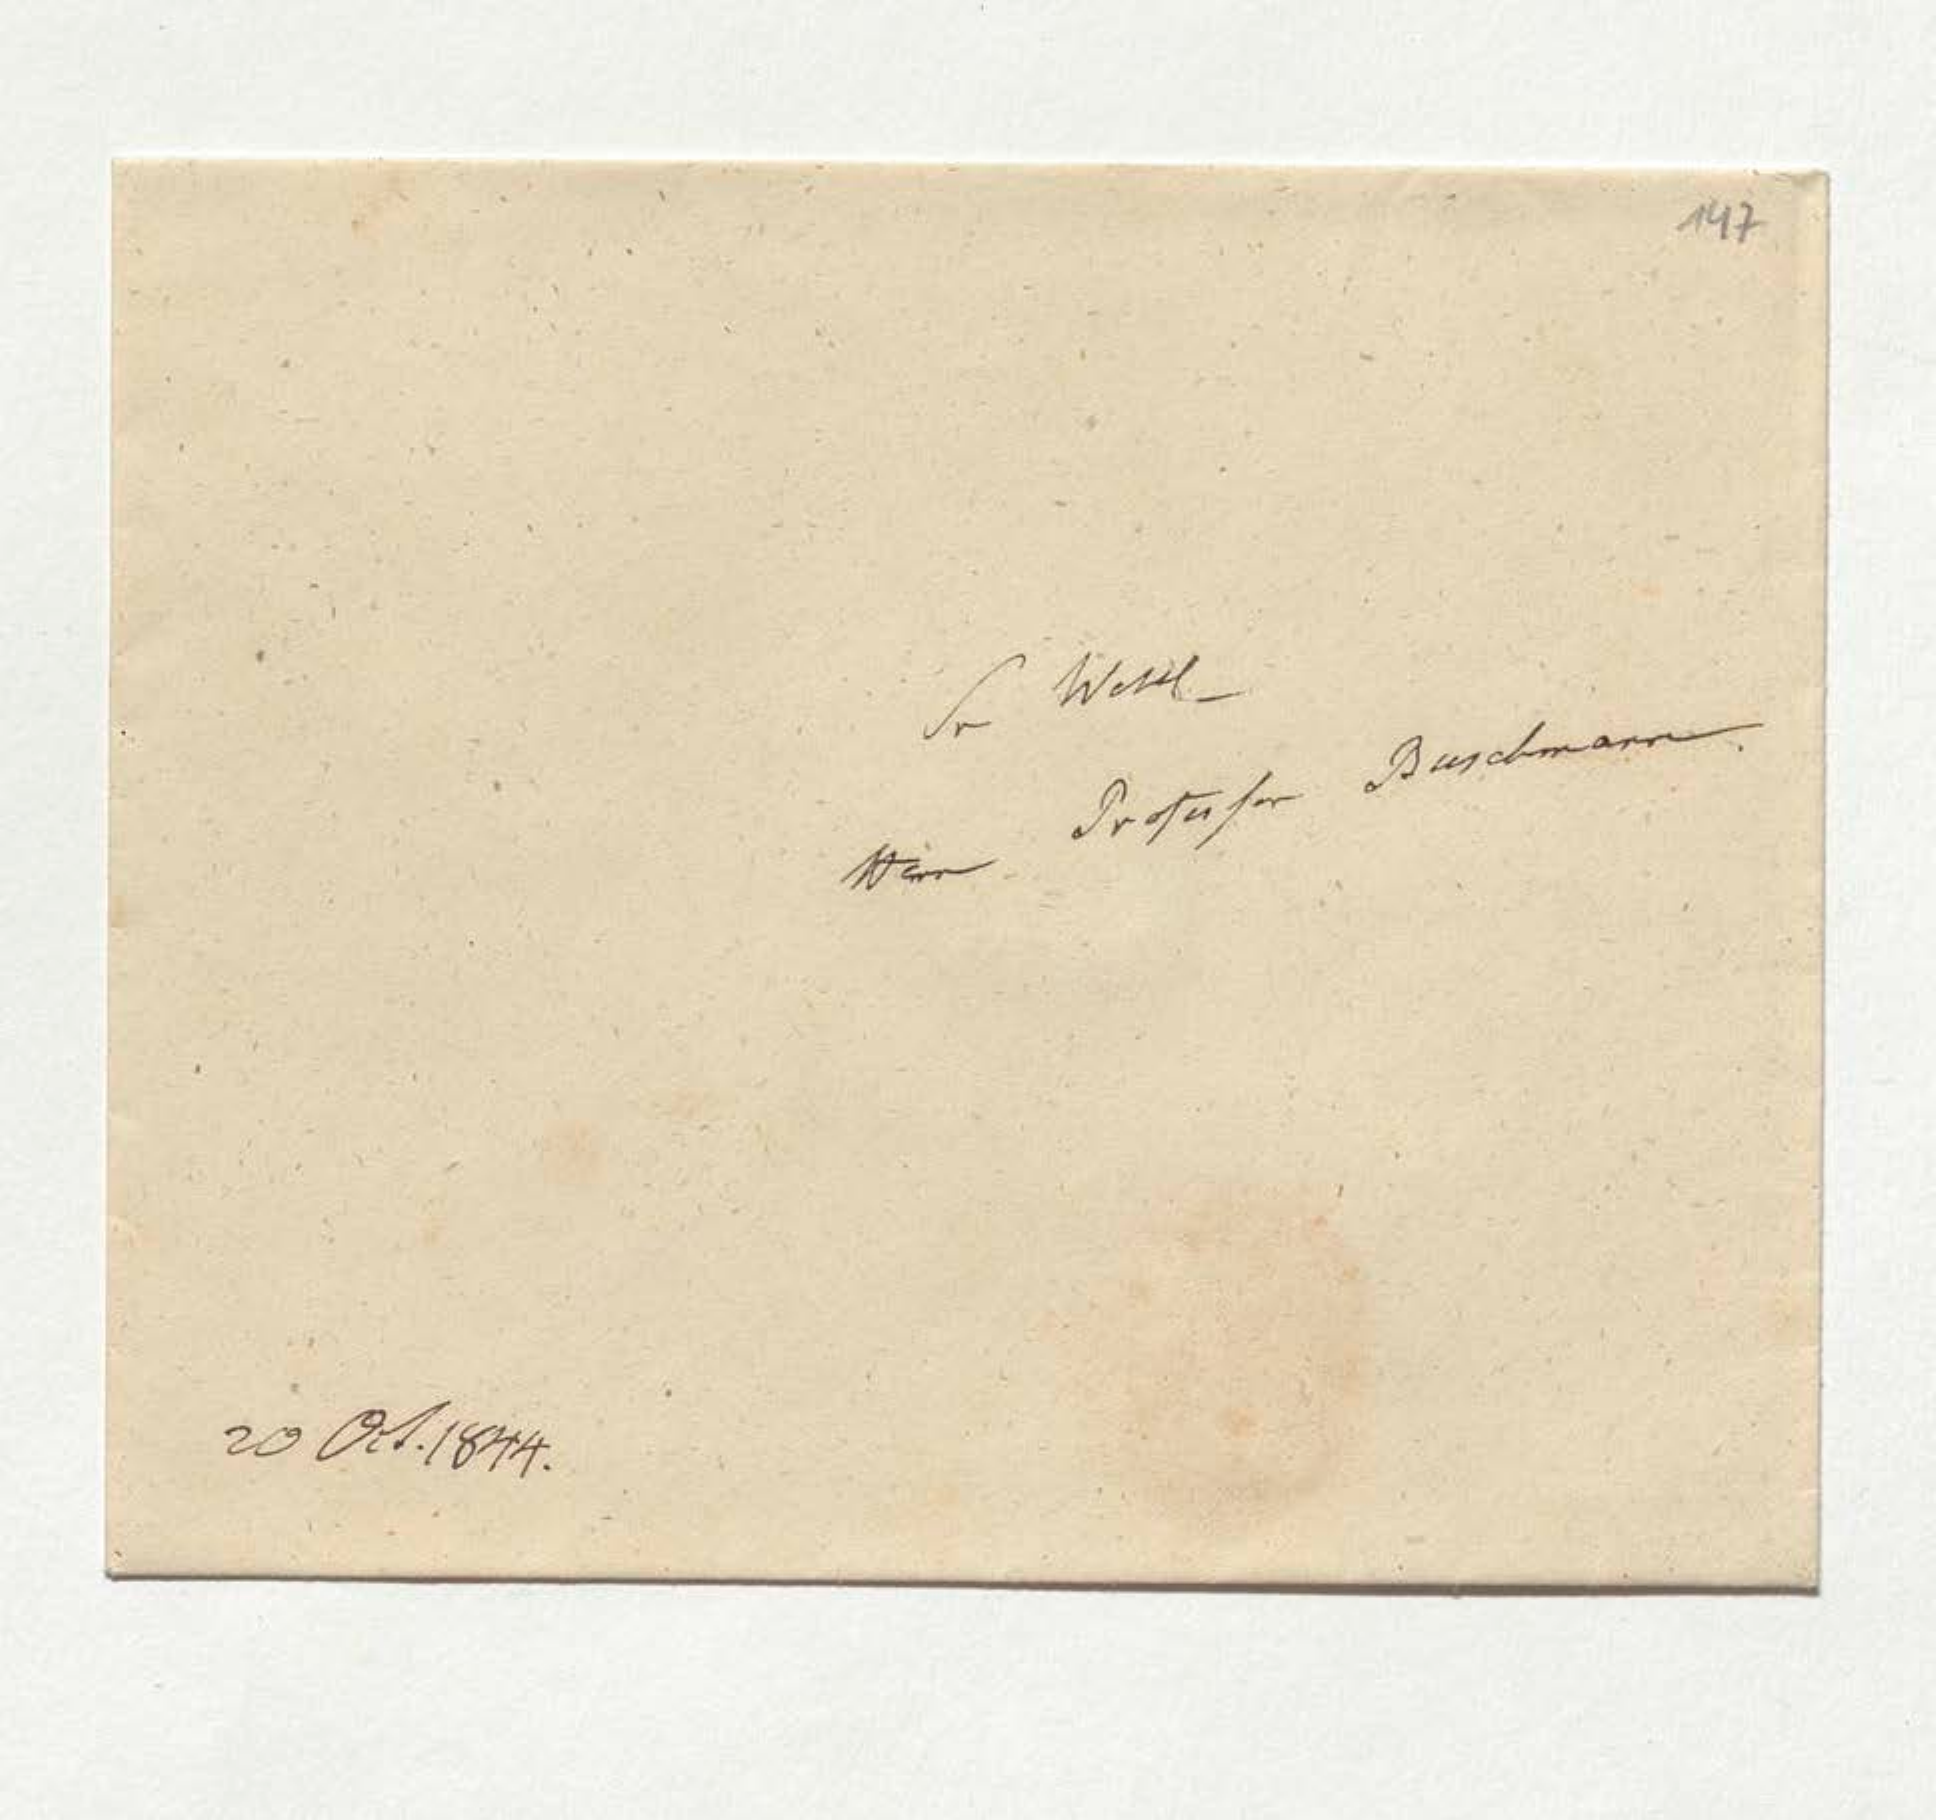 147
Sr Wohl
Herrn Professor Buschmann.
20 Oct. 1844.